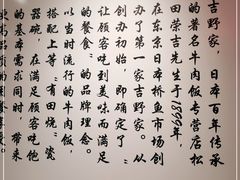 吉野家，日本百年传承
的著名牛肉饭专营店松
田荣吉先生于1899年
在东京日本桥鱼市场创
办了第一家吉野家。从
创办初始，即确定了“
让顾客吃到美味而满足
的餐食”的品牌理念。
以当时流行的牛肉饭，
搭配上等“有田烧”瓷
器碗，在满足顾客吃饱
的基本需求同时，带来